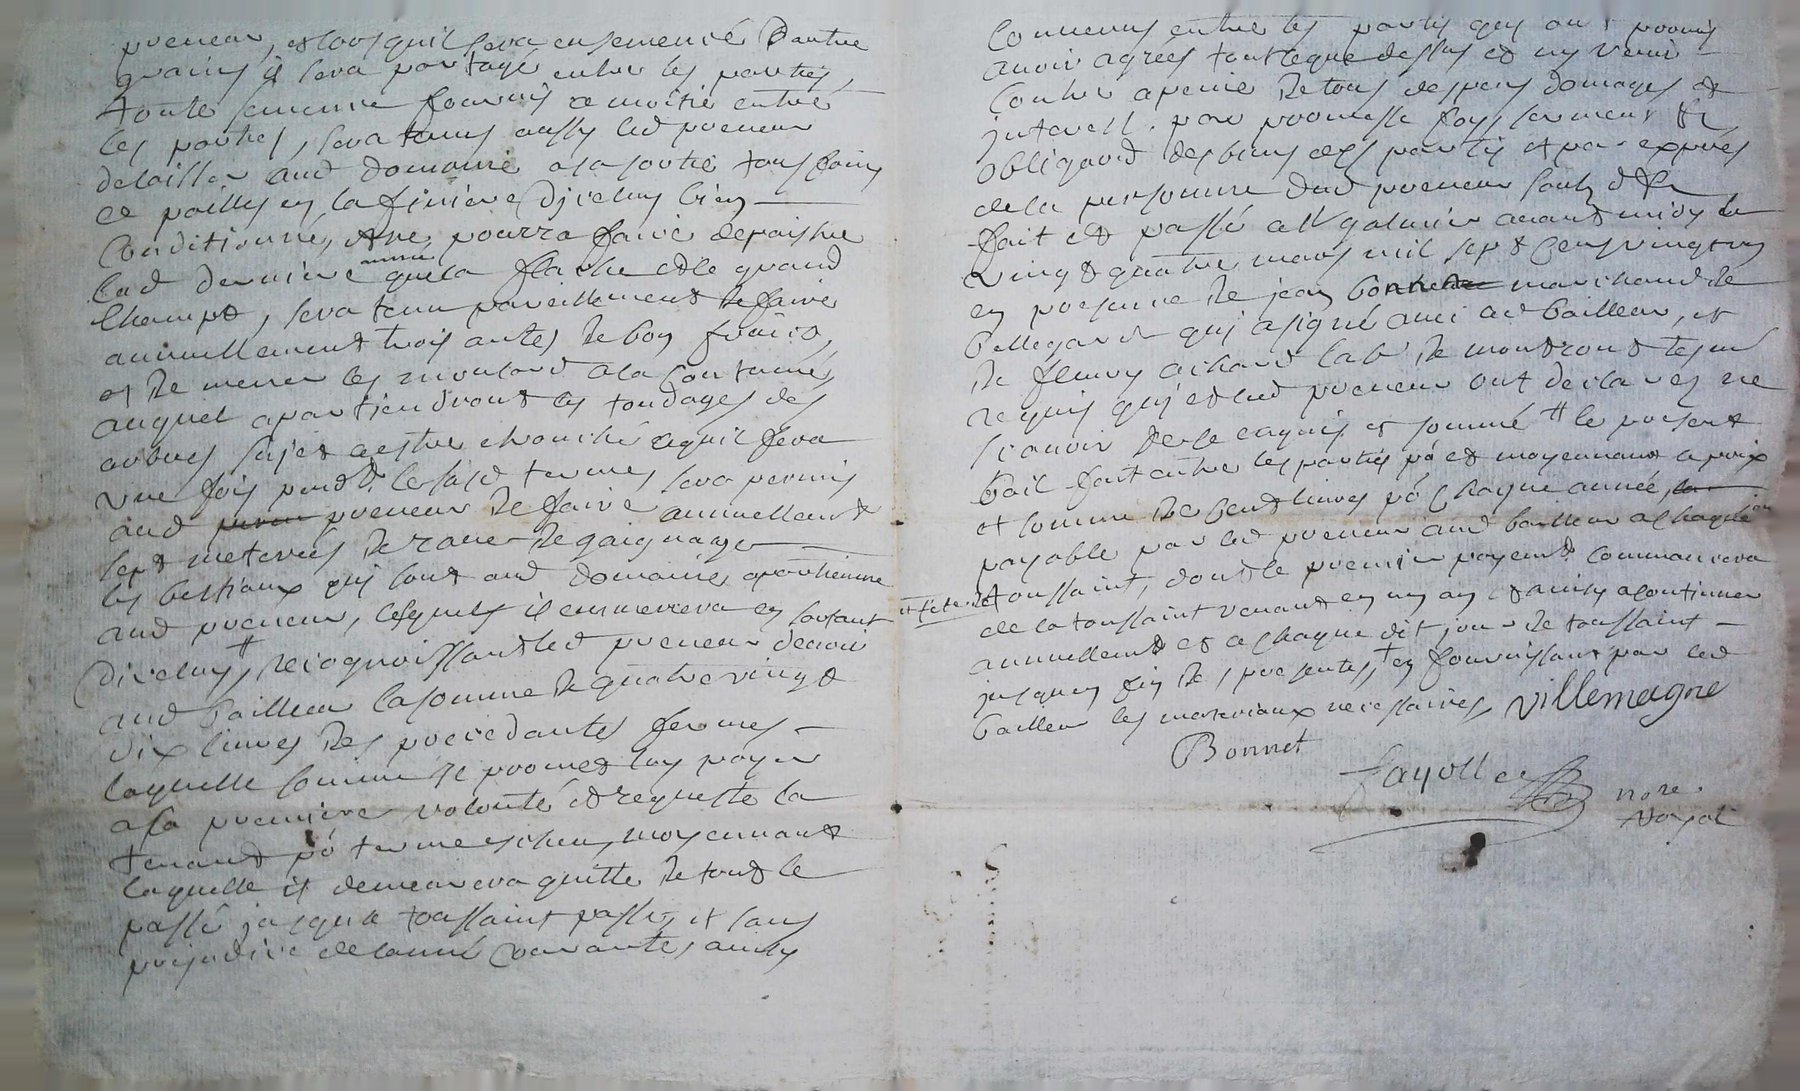 preneur, et lorsquil sera ensemencé Dautre
grains il sera partagé entre les parties,
toute semence fournis a moitié entre
les parties, sera tenus aussy led preneur
delaisser aud domaine a sa sortie tous foins
et pailles en la finiere Diceluy bien
Conditionné, et ne pourra faire depaistre
lad derniere année que la flache et le grand
Champt, sera tenu pareillement de faire
annuellement trois antes de bon fruict,
et de mener les
auquel apartiendront les tondages des
arbres sujet a estre et quil fera
une fois pendt. le susd termes, sera permis
aud preneur de faire annuellemt
sept meterées de rave de gaignage
les bestiaux qui sont aud domaine apartienne
aud preneur, lesquels il enmenera en sortant
Diceluy, # recognoissant led preneur devoir
aud bailleur la somme de quatre vingt
dix livres des precedantes fermes
laquelle somme il promet luy payer
a sa premiere volonté et requeste la
tenant po' terme escheu, moyennant
laquelle il demeurera quitte de tout le
passé jusqua toussaint passée, et sans
prejudice de lannée courante, ainsy
Convenus entre les partis qui ont promis
avoir agrées tout ce que dessus et ny venir
Contre a peine de tous despens domages et
interest. par promesse foy, serment &
obligaond des biens desd partis et par exprés
de la personne dud preneur soub d &
fait et passé a St galmier avant midy le
vingt quatre mars mil sept Cens vingt
en presence de jean marchand de
bellegarde qui a signé avec led bailleur, et
de fleury achard lab' de montrond tesm
requis qui et led preneur ont declarez ne
scavoir de ce enquis et sommé # le present
bail fait entre les partis po' et moyennant le prix
et somme de Cent livres po' Chaque année,
payable par led preneur aud bailleur a Chaque
et feste de toussaint, dont le premier payemt. Commancera
de la toussaint venant en un an et ainsy a continuer
annuellemt et a Chaque dit jour de toussaint
jusquen fin des presentes, + en fournissant par led
bailleur les materiaux necessaires, Villemagne
Bonnet
nore.
Royal